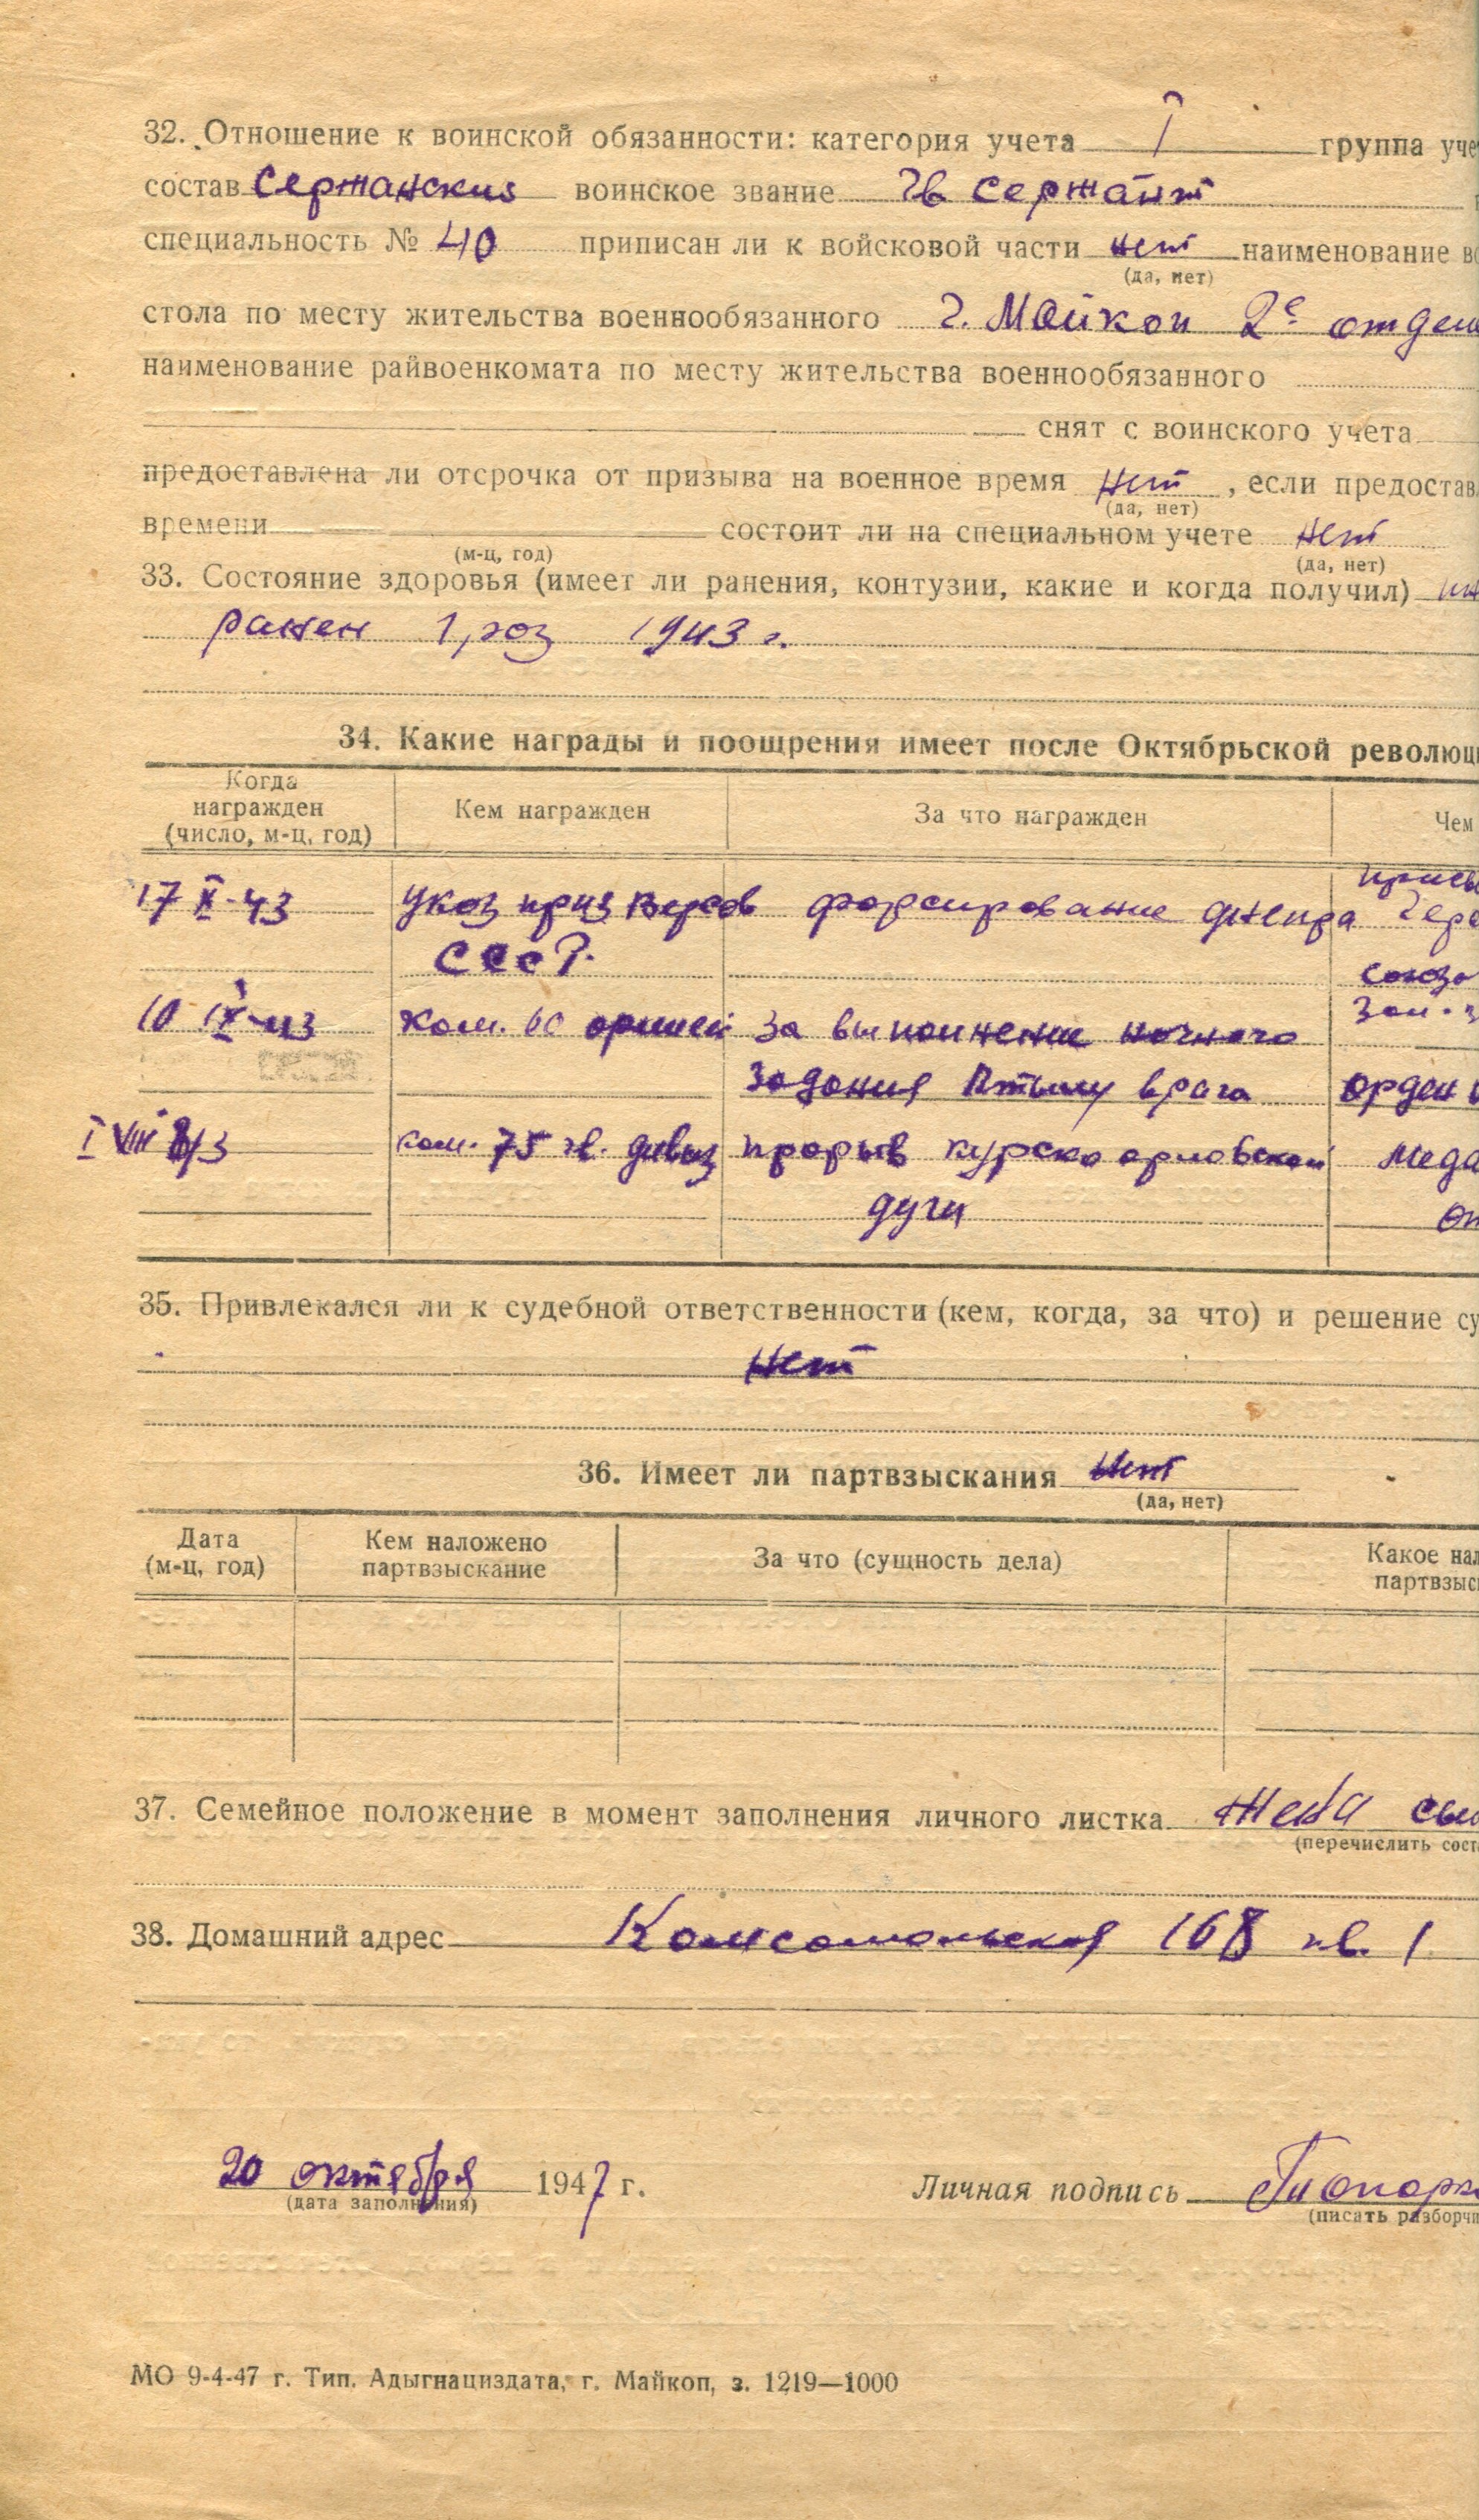 32. Отношение к воинской обязанности: категория учета I группа уче
состав Сержанский воинское звание гв Сержант
специальность № 40 приписан ли к войсковой части нет наименование во
(да, нет)
стола по месту жительства военнообязанного г. Майкоп 2е отдел
наименование райвоенкомата по месту жительства военнообязанного
снят с воинского учета
предоставлена ли отсрочка от призыва на военное время нет, если предостав
(да, нет)
времени состоит ли на специальном учете нет
(м-ц, год) (да, нет)
33. Состояние здоровья (имеет ли ранения, контузии, какие и когда получил)
ранен 1, раз 1943 г.
34. Какие награды и поощрения имеет после Октябрьской революци
Когда награжден (число, м-ц, год) Кем награжден За что награжден Чем
17 X-43 Указ през Версов форсирование днепра Геро
СССР. союза
10 IX-43 Ком. 60 армией за выполнение ночного
задания Втылу врага орден
I VIII 43 ком. 75 гв. дивиз прорыв курско орловской меда
дуги
35. Привлекался ли к судебной ответственности (кем, когда, за что) и решение су
Нет
36. Имеет ли партвзыскания Нет
(да, нет)
Дата (м-ц, год) Кем наложено партвзыскание За что (сущность дела) Какое нал партвзыс
37. Семейное положение в момент заполнения личного листка Жена сын
(перечислить сост
38. Домашний адрес Комсомольская 168 кв. 1
20 октября 1947 г. Личная подпись Топорк
(дата заполнения) (писать разборчи
МО 9-4-47 г. Тип. Адыгнациздата, г. Майкоп, з. 1219—1000